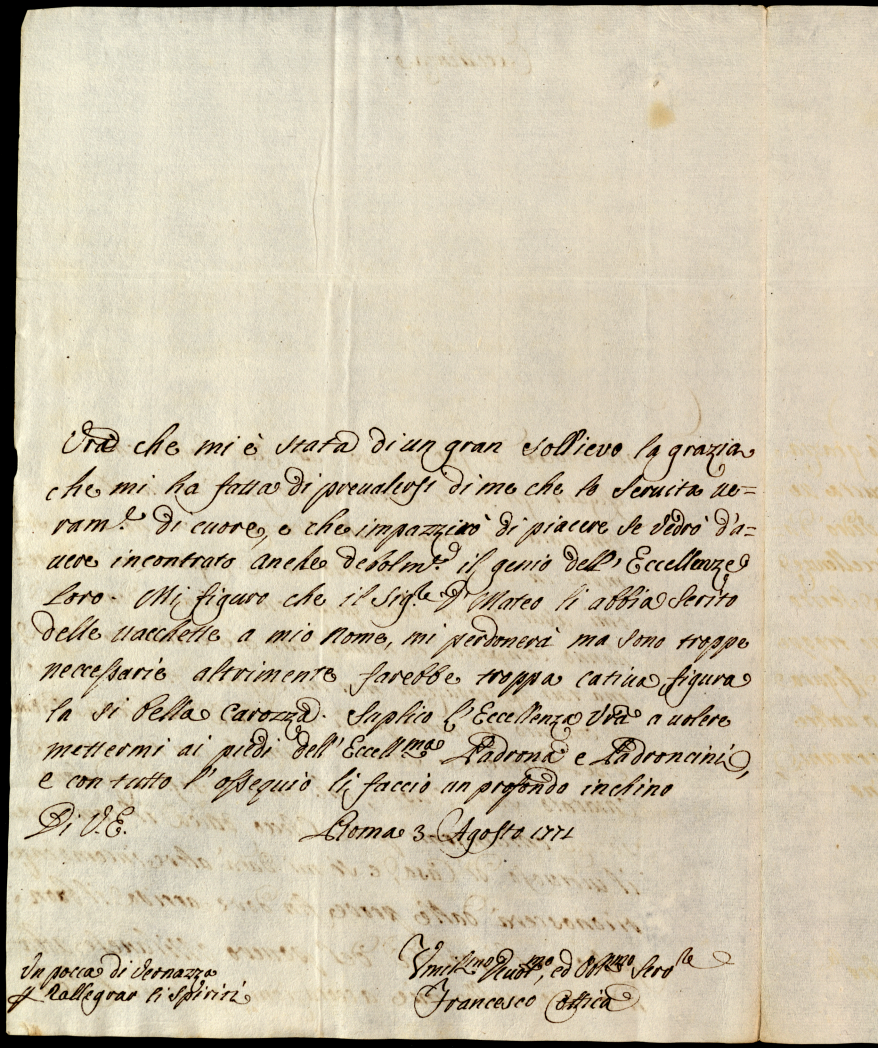 Vrã che mi è stata di un gran sollievo la grazia
che mi ha fatta di prevalersi di me che lo servita ve=
ram.te di cuore, e che impazzirò di piacere se vedrò d'a=
vere incontrato anche debolm.te il genio dell'Eccellenze
Loro. Mi figuro che il Sig.re D. Mateo li abbia scrito
delle vacchette a mio nome, mi perdonerà ma sono troppe
neccessarie altrimente farebbe troppa cativa figura
la si bella carozza. Suplico l'Eccellenza Vrã a volere
mettermi ai piedi dell'Eccell.ma Padrona e Padroncini,
e con tutto l'ossequio li faccio un profondo inchino
Di V.E. Roma 3 Agosto 1771
Umil.mo Devot.mo, ed Obl.mo Ser.re
Francesco Cottica
Un pocca di vernazza
Rallegrar li spiriti